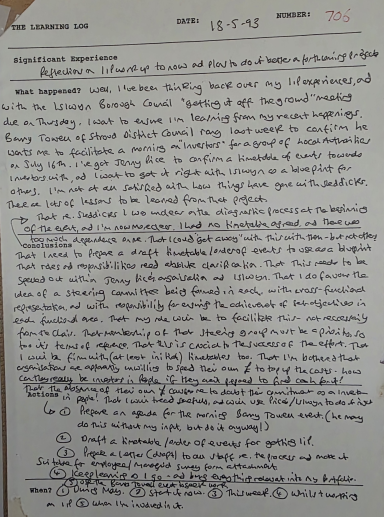 THE LEARNING LOG DATE: 18-5-93 NUMBER: 706
Significant Experience
Reflections on IiP work up to now and plans to do it better a forthcoming projects
What happened? Well, I've been thinking back over my IiP experiences, and
with the Islwyn Borough Council "getting it off the ground" meeting
due on Thursday. I want to ensure I'm learning from my recent happenings.
Barry Towers of Stroud District Council rang last week to confirm he
wants me to facilitate a morning on "Investors" for a group of Local Authorities
on July 16th. I've got Jenny Rice to confirm a timetable of events towards
Investors with, and I want to get it right with Islwyn as a blueprint for
others. I'm not at all satisfied with how things have gone with Seddicks.
There are lots of lessons to be learned from that project.
That re. Seddicks I was unclear on the diagnostic process at the beginning
of the event, and I'm now more clear. I had no timetable agreed, and there was
too much dependence on me. That I could "get away" with this with them - but not others
Conclusions
That I need to prepare a draft timetable/order of events to use as a blueprint
That roles and responsibilities need absolute clarification. That this needs to be
spelled out within Jenny Rice's organisation and Islwyn. That I do favour the
idea of a steering committee being formed in each, with cross-functional
representation, and with responsibility for ensuring the achievement of key objectives in
each functional area. That my role will be to facilitate this - not necessarily
from the chair. That membership of that steering group must be a priority, so
too its terms of reference. That this is crucial to the success of the effort. That
I must be firm with (at least initial) timetables too. That I'm bothered that
organisations are apparently unwilling to spend their own £ to top up the costs - how
can they really be investors in people if they aren't prepared to find cash for it!
That the absence of their own £ causes me to doubt their commitment as an investor
in people! That I
Actions
① Prepare an agenda for the morning Barry Towers event. (he may
do this without my input, but do it anyway!)
② Draft a timetable/order of events for getting IiP.
③ Prepare a letter (drafts) to all staff re. the process and make it
suitable for employee/managerial survey form attachment
④ Keep learning as I go - and bring everything relevant into my portfolio.
⑤ Use the Barry Towers event
When? ① During May. ② Start it now. ③ This week. ④ Whilst working
on IiP ⑤ when I'm involved in it.